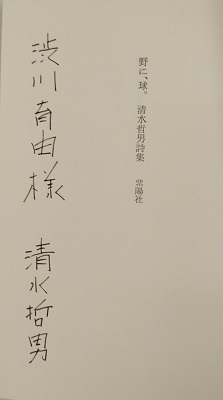 野に、球。 清水哲男詩集 紫陽社
渋川育由様
清水哲男